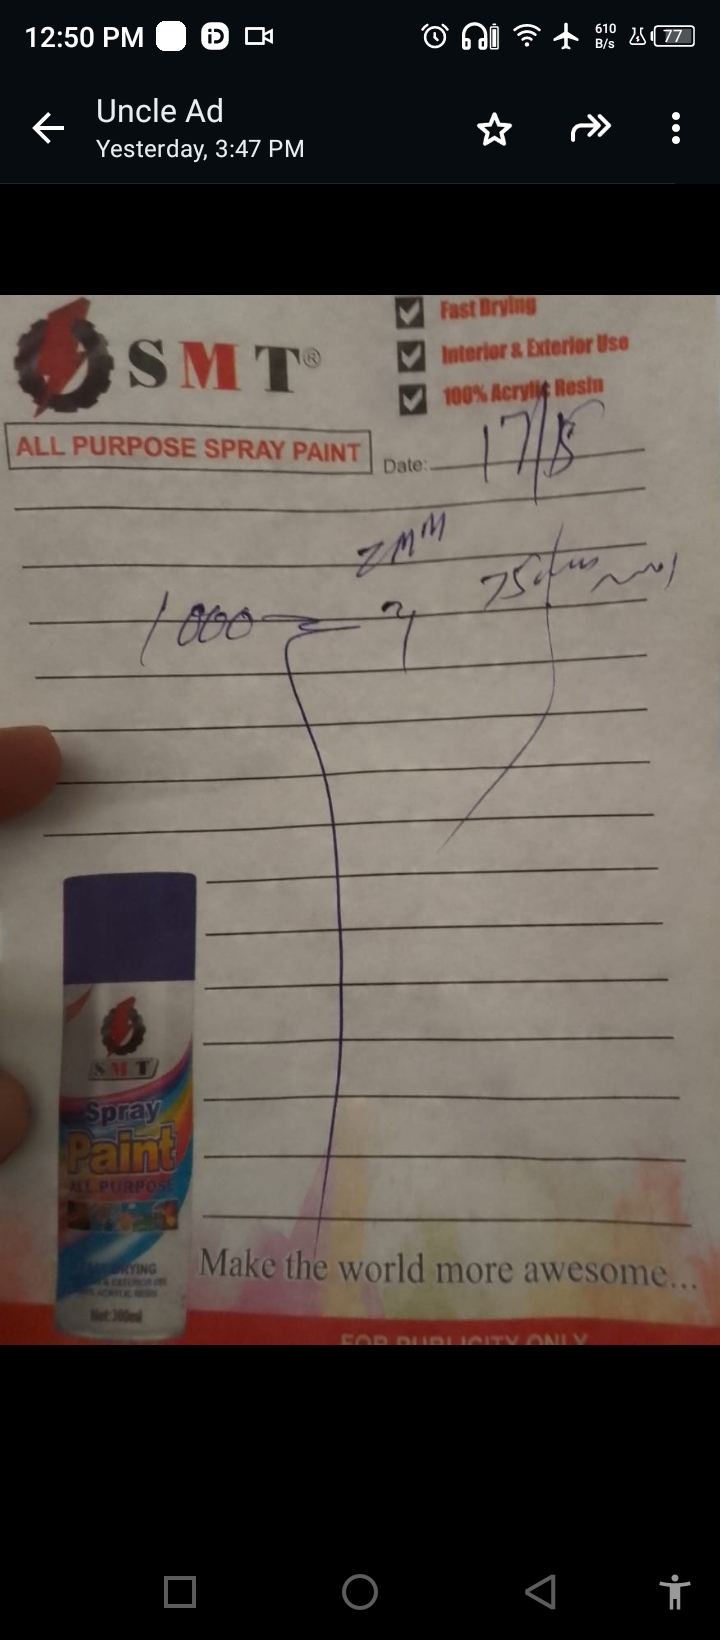 12:50 PM
610 B/s
77
Uncle Ad
Yesterday, 3:47 PM
Fast Drying
SMT®
Interior & Exterior Use
100% Acrylic Resin
ALL PURPOSE SPRAY PAINT
Date:
17/8
2MM
1000
SMT
Spray
Paint
ALL PURPOSE
Net:300ml
Make the world more awesome...
FOR PUBLICITY ONLY